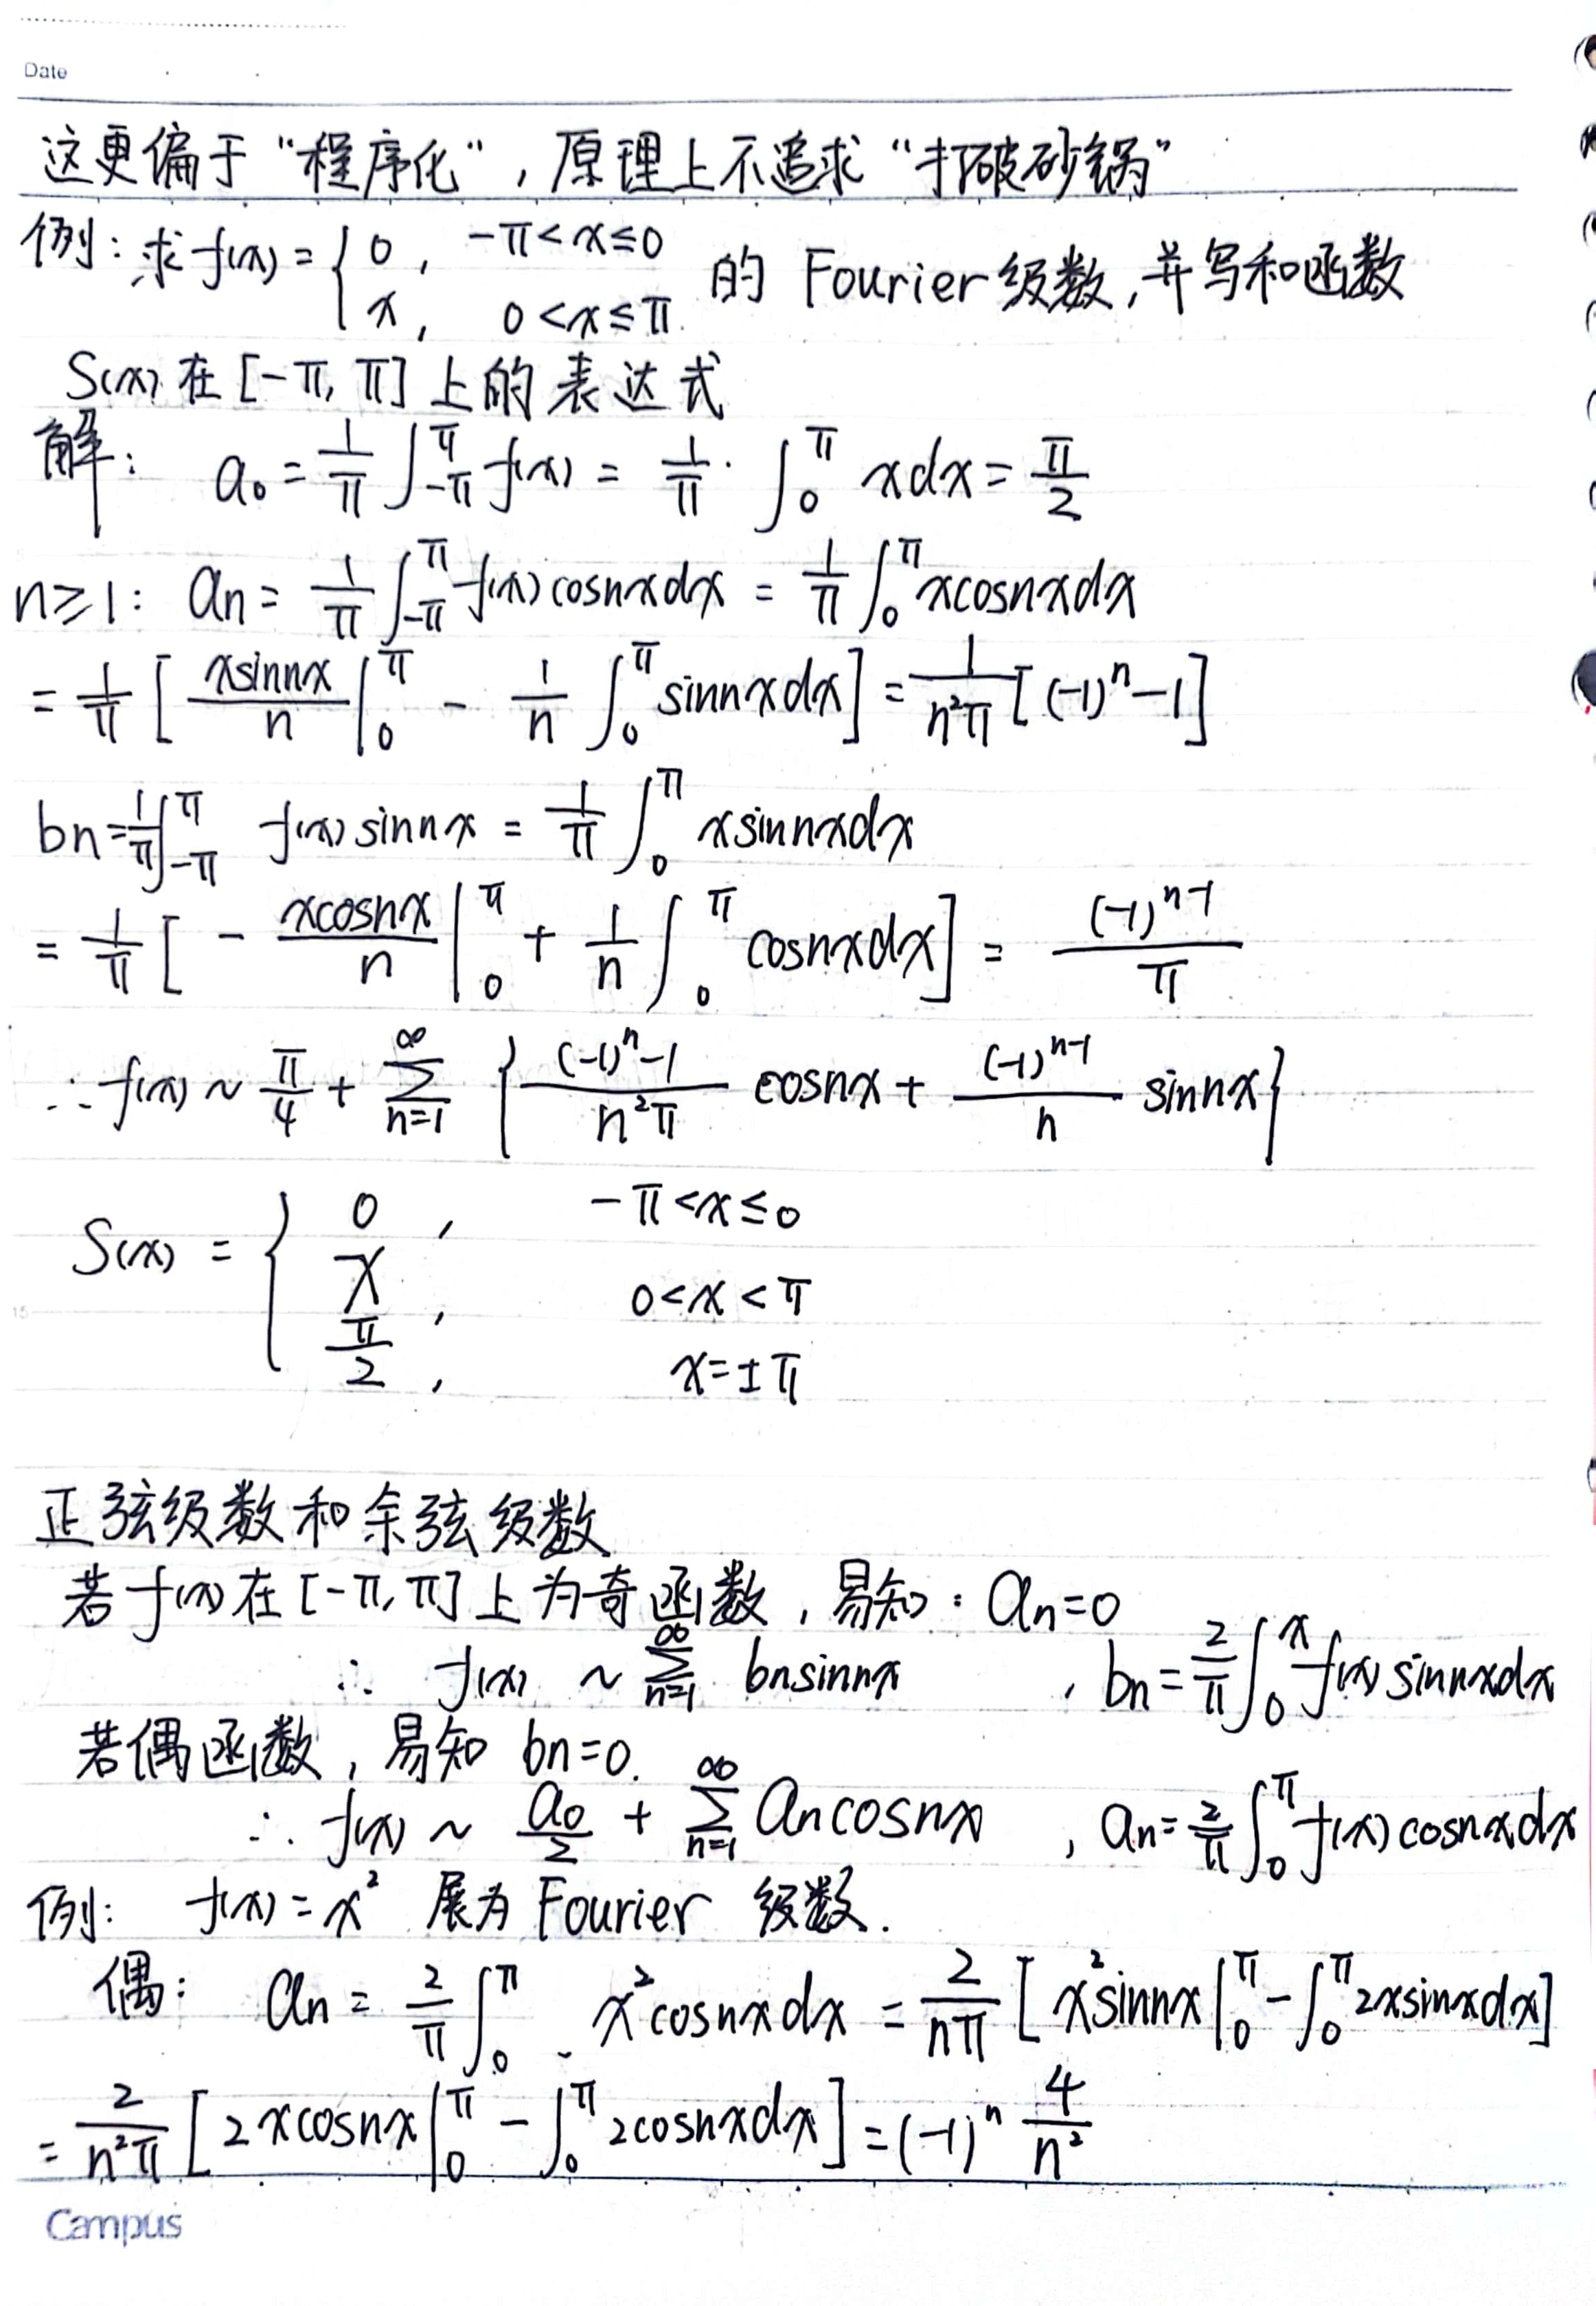 Date
这更偏于“程序化”，原理上不追求“打破砂锅”
例：求 f(x) = { 0， -π<x≤0 ; x， 0<x≤π. 的 Fourier 级数，并写和函数
S(x) 在 [-π, π] 上的表达式
解： a₀ = 1/π ∫_{-π}^{π} f(x) = 1/π · ∫_0^π xdx = π/2
n≥1： aₙ = 1/π ∫_{-π}^{π} f(x)cosnxdx = 1/π ∫_0^π xcosnxdx
= 1/π [ xsinnx/n |_0^π - 1/n ∫_0^π sinnxdx ] = 1/(n²π) [(-1)ⁿ-1]
bₙ = 1/π ∫_{-π}^{π} f(x)sinnx = 1/π ∫_0^π xsinnxdx
= 1/π [ - xcosnx/n |_0^π + 1/n ∫_0^π cosnxdx ] = (-1)^{n-1}/π
∴ f(x) ~ π/4 + Σ_{n=1}^∞ { ((-1)ⁿ-1)/(n²π) cosnx + (-1)^{n-1}/n sinnx }
S(x) = { 0， -π<x≤0
x， 0<x<π
π/2， x=±π
15
正弦级数和余弦级数
若 f(x) 在 [-π, π] 上为奇函数，易知：aₙ=0
∴ f(x) ~ Σ_{n=1}^∞ bₙsinnx ，bₙ = 2/π ∫_0^π f(x)sinnxdx
若偶函数，易知 bₙ=0.
∴ f(x) ~ a₀/2 + Σ_{n=1}^∞ aₙcosnx ，aₙ = 2/π ∫_0^π f(x)cosnxdx
例： f(x) = x² 展为 Fourier 级数.
偶： aₙ = 2/π ∫_0^π x²cosnxdx = 2/(nπ) [ x²sinnx |_0^π - ∫_0^π 2xsinxdx ]
= 2/(n²π) [ 2xcosnx |_0^π - ∫_0^π 2cosnxdx ] = (-1)ⁿ 4/n²
Campus